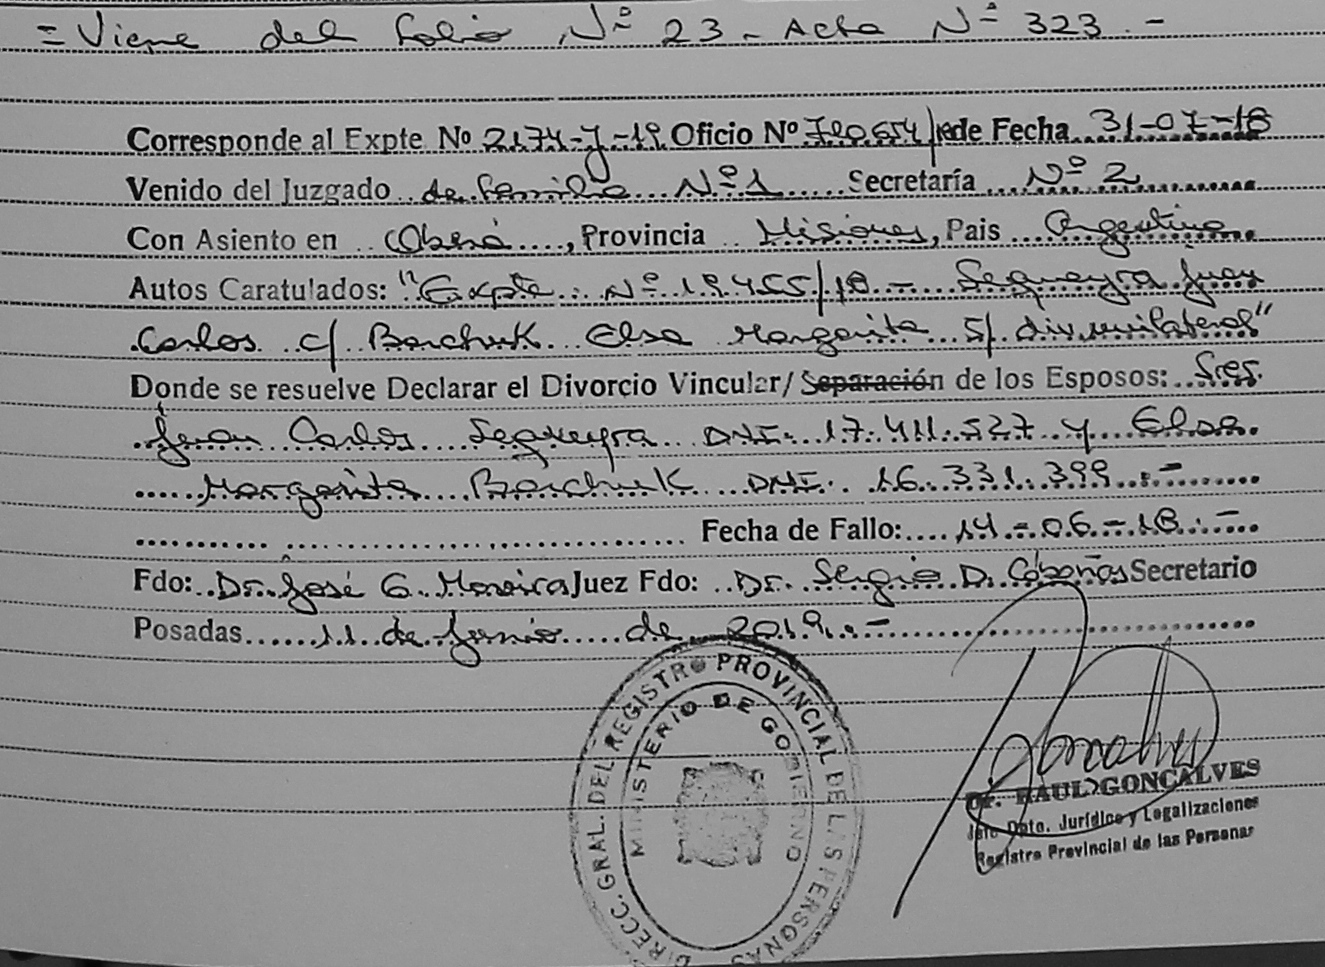 = Viene del folio Nº 23 - Acta Nº 323 . -
Corresponde al Expte Nº 2174-J-19 Oficio Nº 720654/ de Fecha 31-07-18
Venido del Juzgado de familia Nº 1 Secretaría Nº 2
Con Asiento en Oberá, Provincia Misiones, Pais Argentina
Autos Caratulados: "Expte. Nº 19455/18 - Sequeyra Juan
Carlos c/ Barchuk Elsa Margarita S/ div. unilateral"
Donde se resuelve Declarar el Divorcio Vincular/ Separación de los Esposos: Sres.
Juan Carlos Sequeyra DNI. 17.411.527 y Elsa
Margarita Barchuk DNI. 16.331.399 . -
Fecha de Fallo: 14-06-18 . -
Fdo: Dr. José G. Moreira Juez Fdo: Dr. Sergio D. Cabañas Secretario
Posadas 11 de Junio de 2019 . -
DIRECC. GRAL. DEL REGISTRO PROVINCIAL DE LAS PERSONAS
MINISTERIO DE GOBIERNO
Dr. RAUL GONCALVES
Jefe Dpto. Jurídico y Legalizaciones
Registro Provincial de las Personas